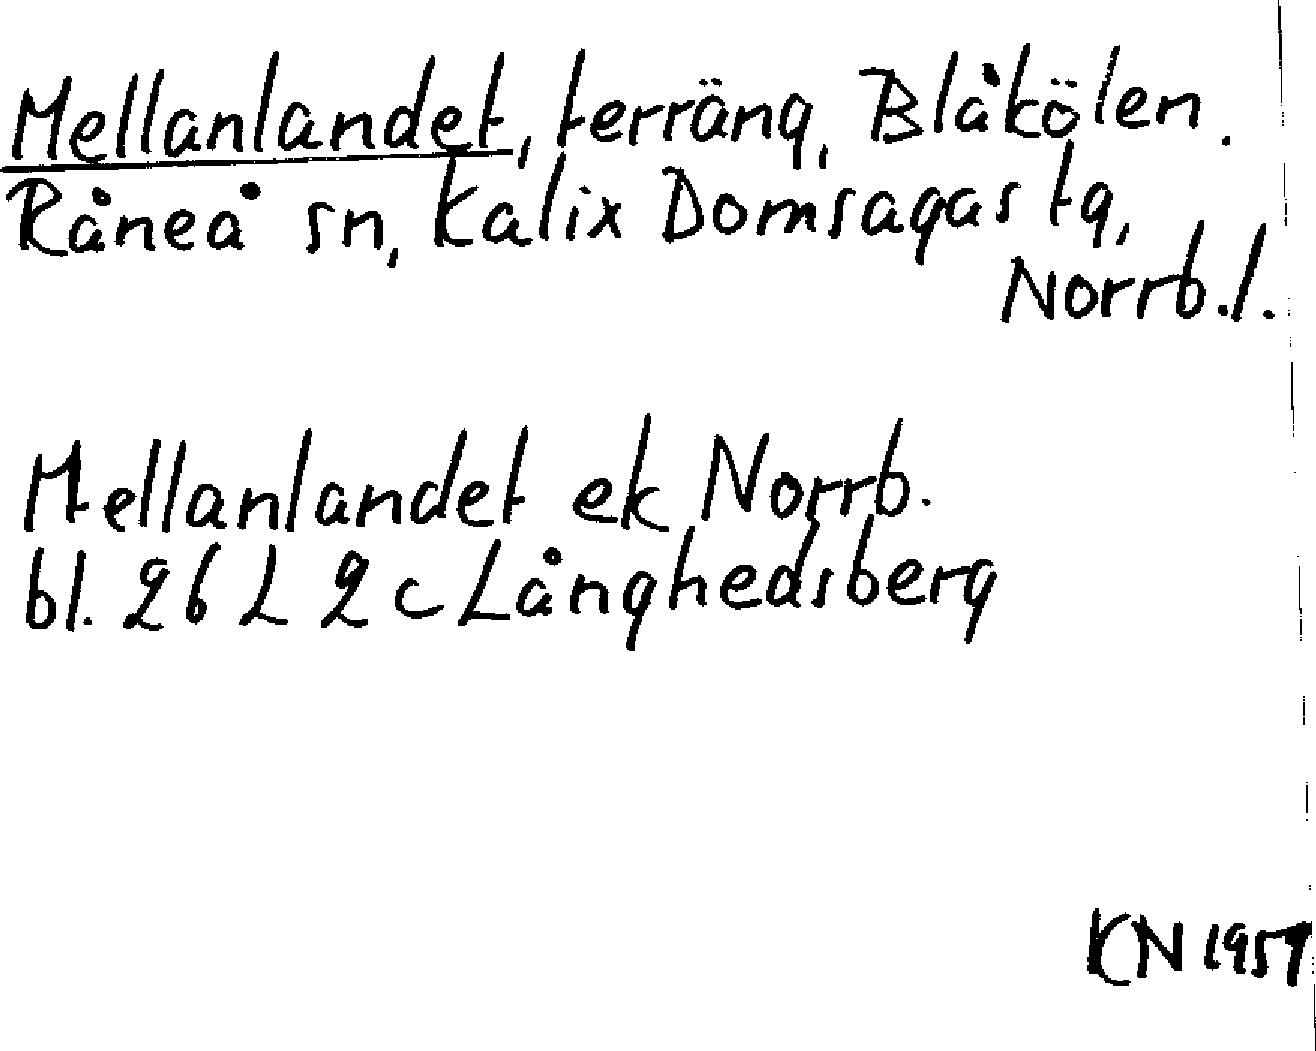 Mellanlandet, terräng, Blåkölen.
Råneå sn, Kalix Domsagas tg,
Norrb.l.
Mellanlandet ek Norrb.
bl. 26 L 2 c Långhedsberg
KN 1957